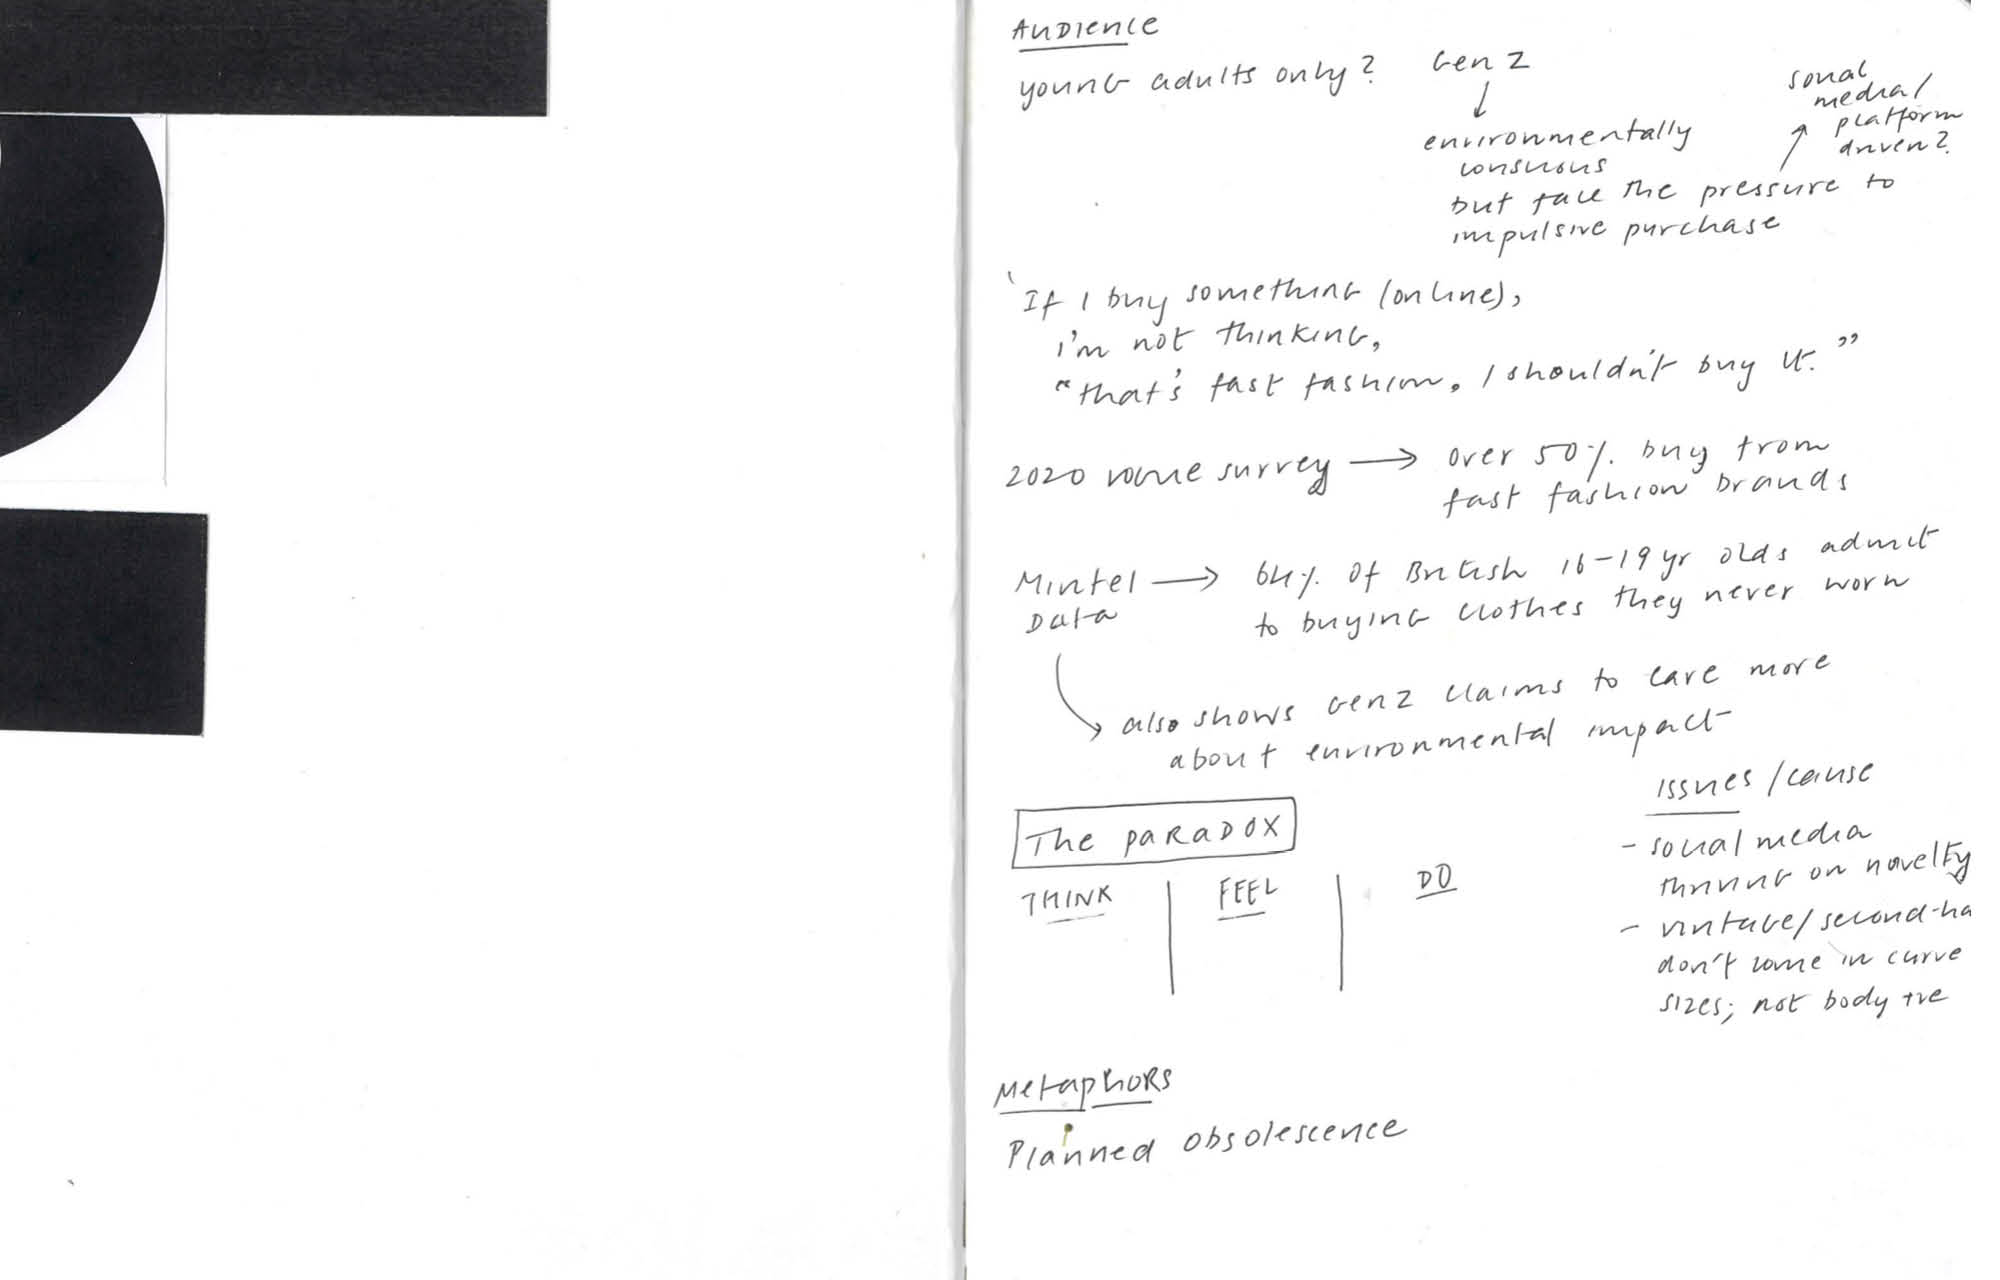 AUDIENCE
young adults only?
Gen Z
environmentally
conscious
but face the pressure to
impulsive purchase
social
media/
platform
driven?
'If I buy something (online),
i'm not thinking,
"that's fast fashion, I shouldn't buy it."
2020 vogue survey → over 50% buy from
fast fashion brands
Mintel → 64% of British 16-19 yr olds admit
Data
to buying clothes they never worn
also shows Gen Z claims to care more
about environmental impact
The PARADOX
THINK
FEEL
DO
issues/cause
- social media
thriving on novelty
- vintage/second-ha
don't come in curve
sizes; not body +ve
METAPHORS
Planned obsolescence